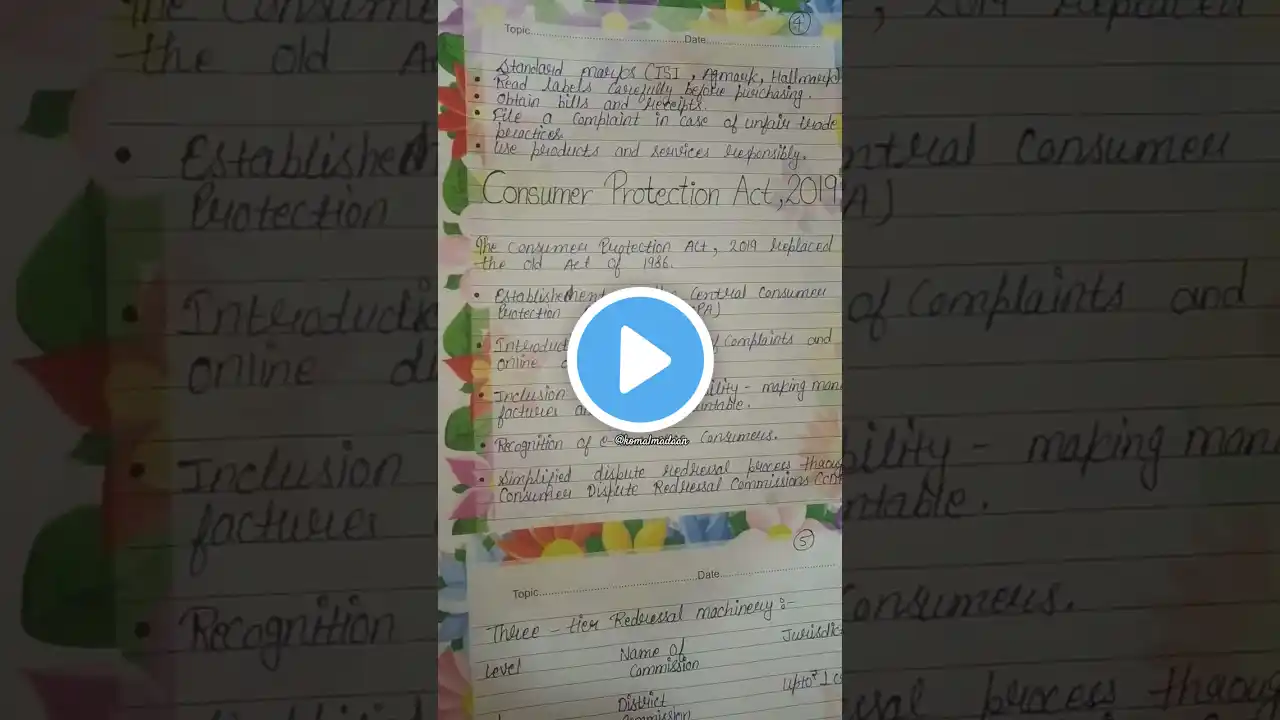 4
Topic Date
Standard marks (ISI, Agmark, Hallmark)
• Read labels carefully before purchasing.
• Obtain bills and receipts.
• File a complaint in case of unfair trade
practices.
• Use products and services responsibly.
Consumer Protection Act, 2019
The Consumer Protection Act, 2019 replaced
the old Act of 1986.
• Establishement the Central Consumer
Protection PA)
• Introduct of Complaints and
online
• Inclusion ility - making manu
factures countable.
@komalmadaan
• Recognition of e- Consumers.
• Simplified dispute redressal process throug
Consumer Dispute Redressal Commissions
5
Topic Date
Three - tier Redressal machinery :
Level Name of Jurisdic
Commission
District upto ₹ 1 c
Commission